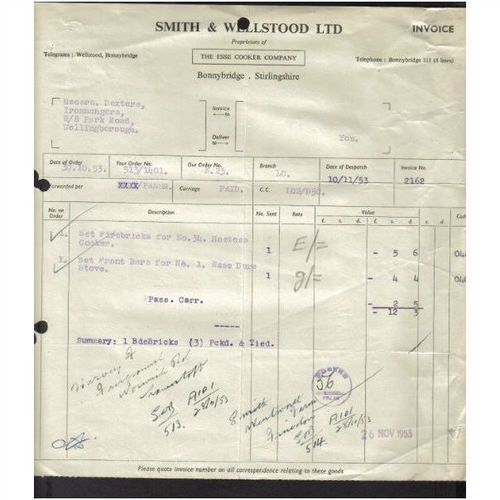 SMITH & WELLSTOOD LTD
INVOICE
Proprietors of
THE ESSE COOKER COMPANY
Telegrams : Wellstood, Bonnybridge
Telephone : Bonnybridge 111 (3 lines)
Bonnybridge . Stirlingshire
Messrs. Dexters,
Ironmongers,
2/8 Park Road,
Wellingborough.
Invoice to
Deliver to
You.
Date of Order Your Order No. Our Order No. Branch Date of Despatch Invoice No.
30.10.53. 513/1401. LO. 10/11/53 2162
Forwarded per XXXX/PASSR. Carriage PAID. C.C.
No. on Order Description No. Sent Rate Value
£ s. d. £ s. d.
1. Set Firebricks for No.34, Hostess Cooker. 1 E/= - 5 6
1. Set Front Bars for No. 1, Esse Dura Stove. 1 g/= - 4 4
Pass. Carr. - 2 5
- 12 3
Summary: 1 BdeBricks (3) Pckd. & Tied.
56
Smith
A101
28/11/53
513.
A101
28/11/53
514.
26 NOV 1953
Please quote invoice number on all correspondence relating to these goods